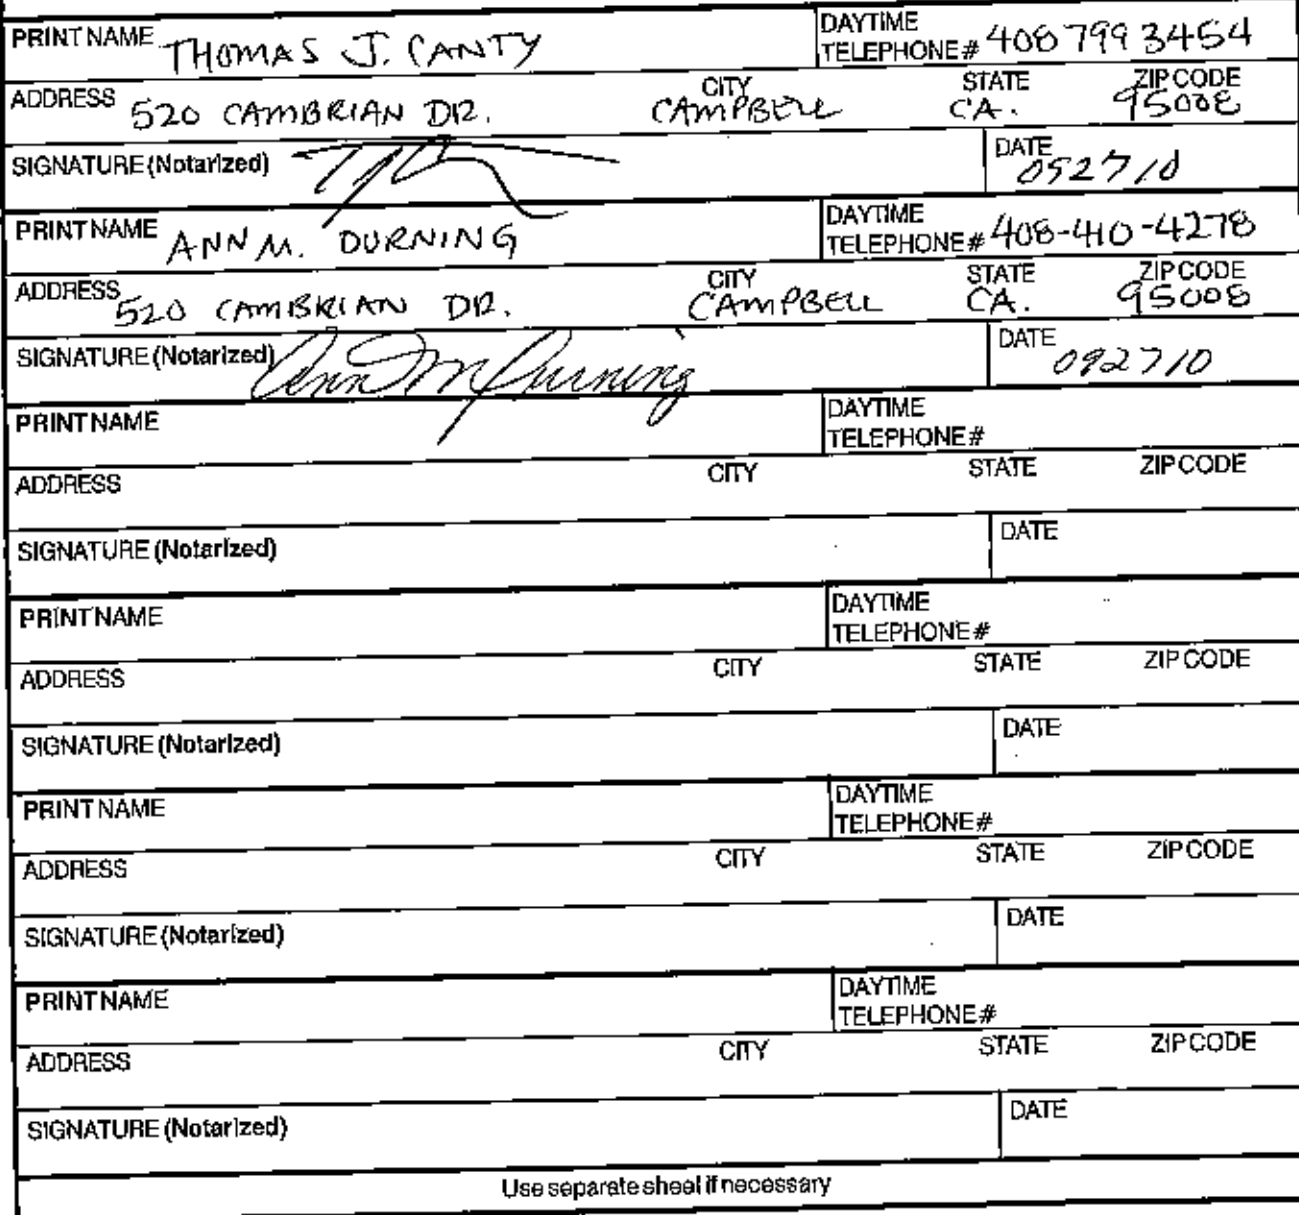 PRINT NAME THOMAS J. CANTY DAYTIME TELEPHONE # 408 799 3454
ADDRESS 520 CAMBRIAN DR. CITY CAMPBELL STATE CA. ZIP CODE 95008
SIGNATURE (Notarized) DATE 092710
PRINT NAME ANN M. DURNING DAYTIME TELEPHONE # 408-410-4278
ADDRESS 520 CAMBRIAN DR. CITY CAMPBELL STATE CA. ZIP CODE 95008
SIGNATURE (Notarized) Ann M Durning DATE 092710
PRINT NAME DAYTIME TELEPHONE #
ADDRESS CITY STATE ZIP CODE
SIGNATURE (Notarized) DATE
PRINT NAME DAYTIME TELEPHONE #
ADDRESS CITY STATE ZIP CODE
SIGNATURE (Notarized) DATE
PRINT NAME DAYTIME TELEPHONE #
ADDRESS CITY STATE ZIP CODE
SIGNATURE (Notarized) DATE
PRINT NAME DAYTIME TELEPHONE #
ADDRESS CITY STATE ZIP CODE
SIGNATURE (Notarized) DATE
Use separate sheet if necessary